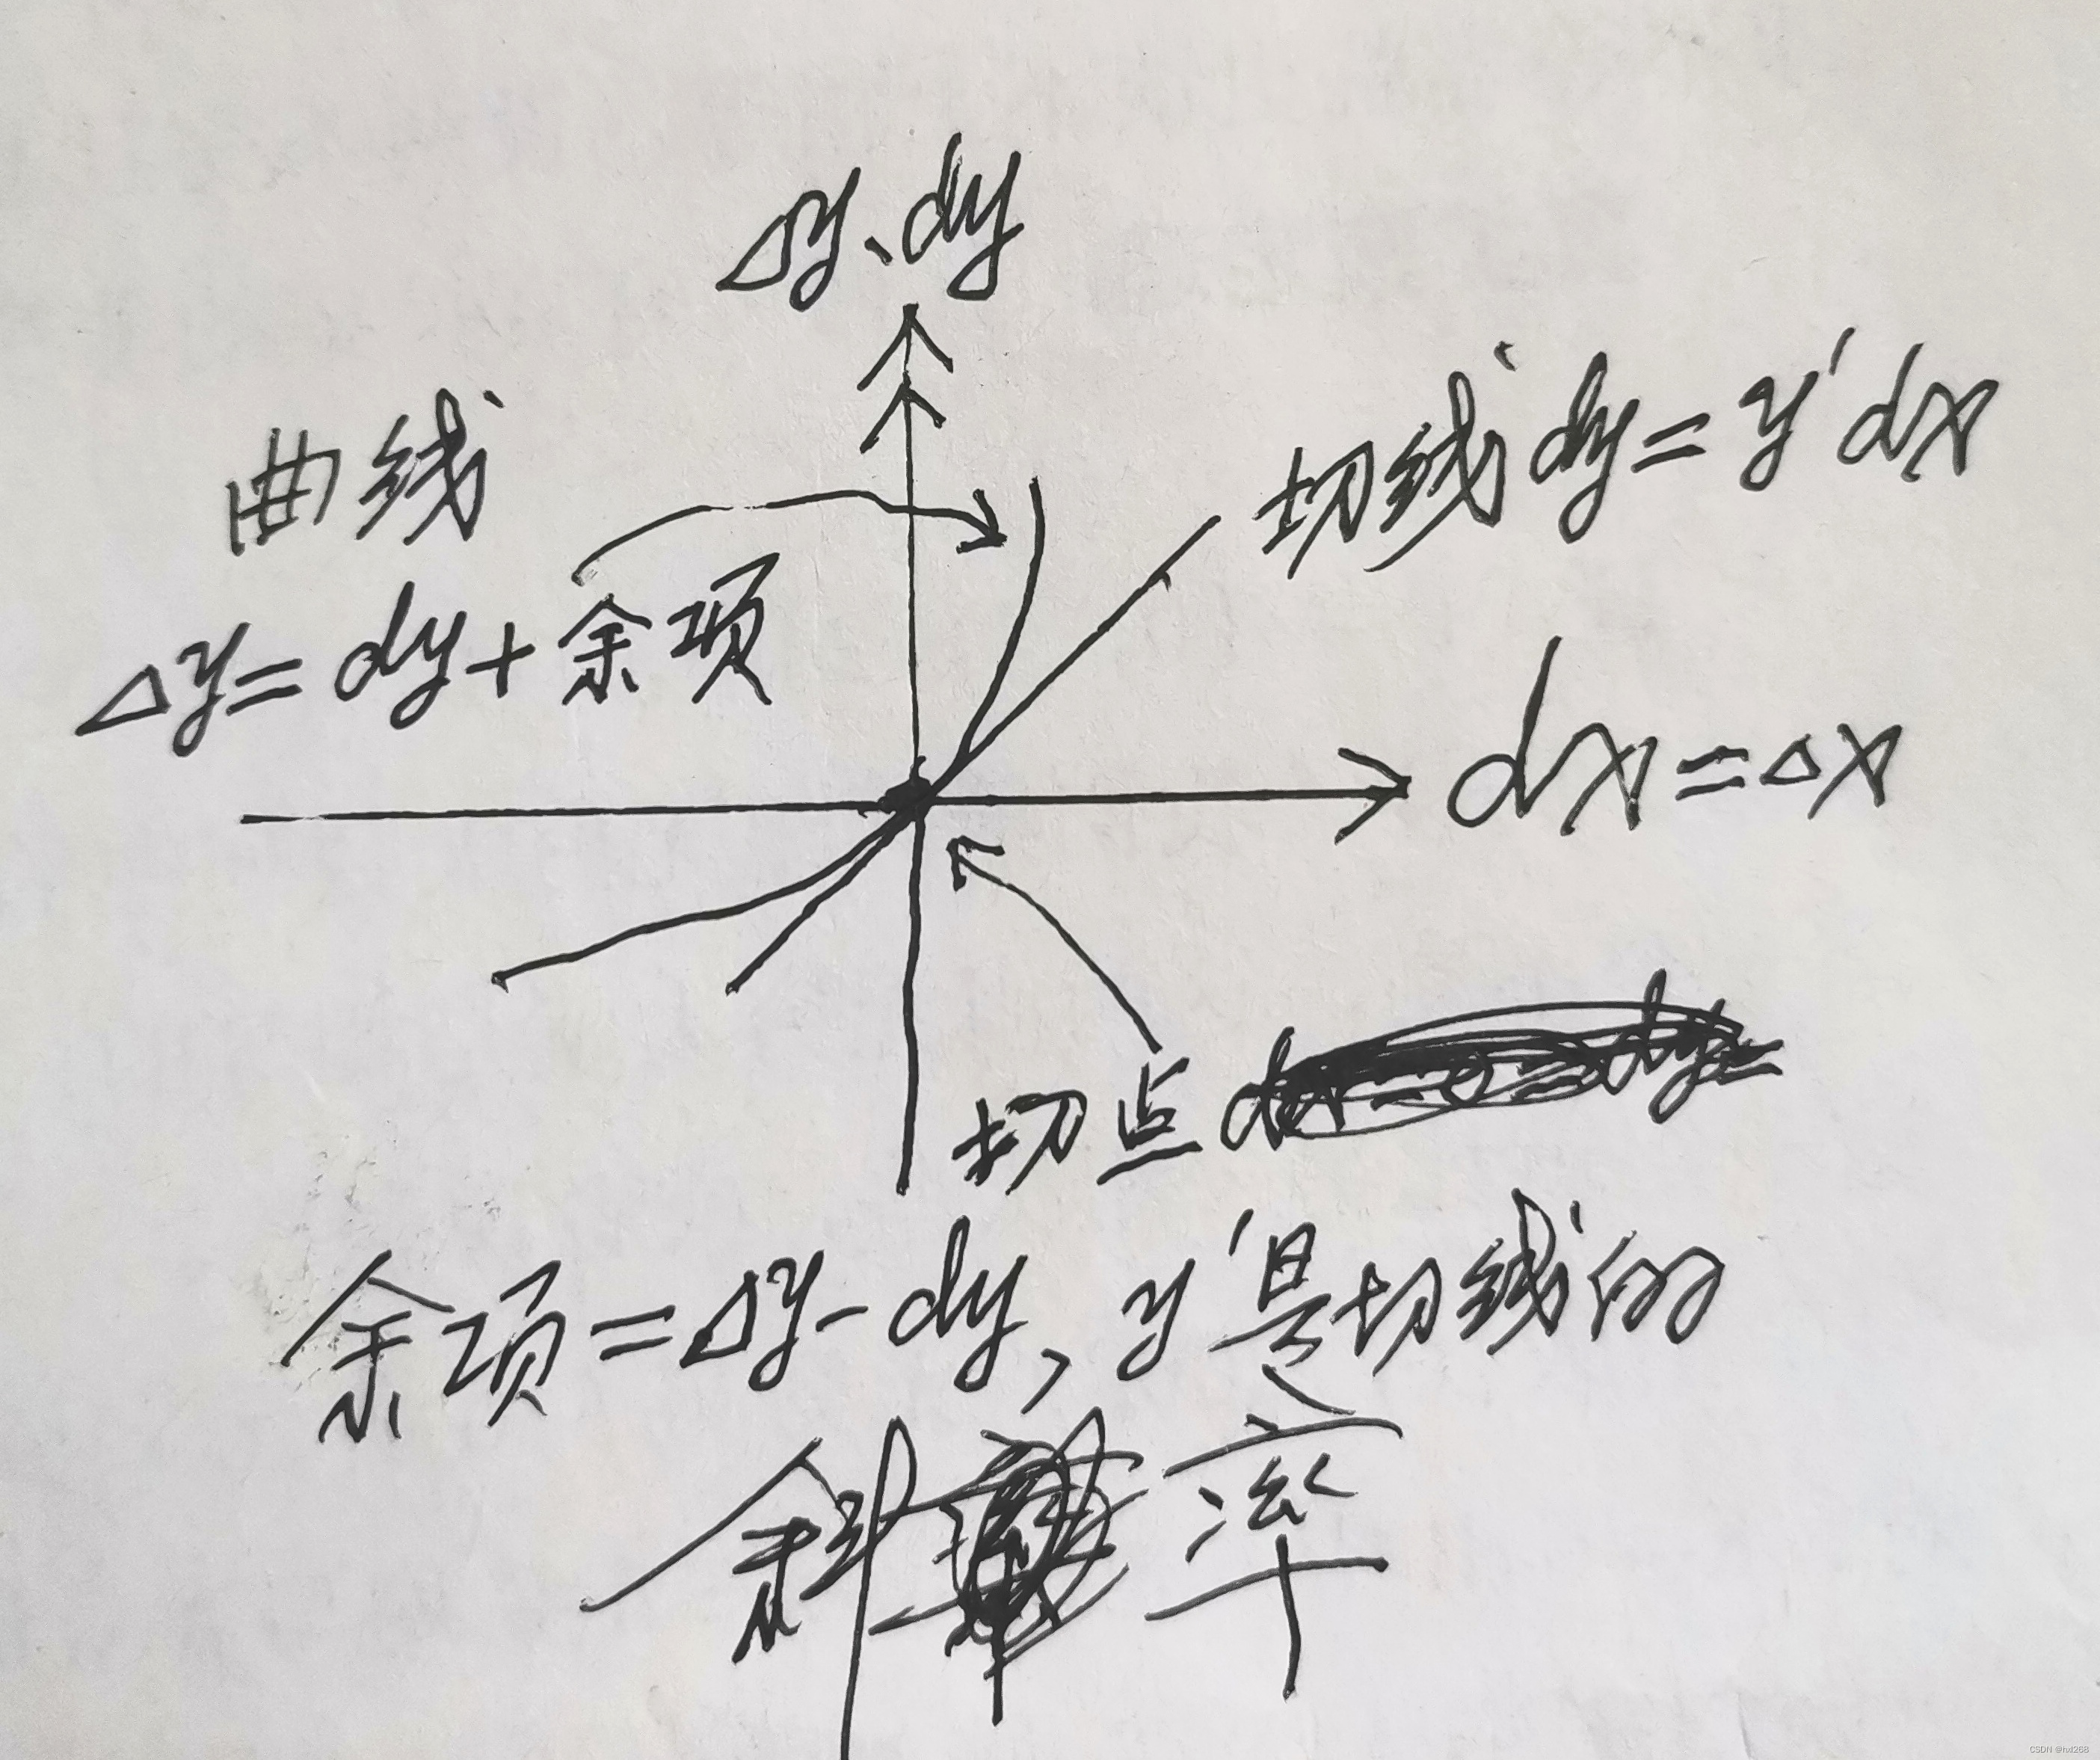 Δy、dy
曲线
切线dy=y'dx
Δy=dy+余项
dx=Δx
切点
余项=Δy-dy, y'是切线的
斜率
CSDN @hxl268